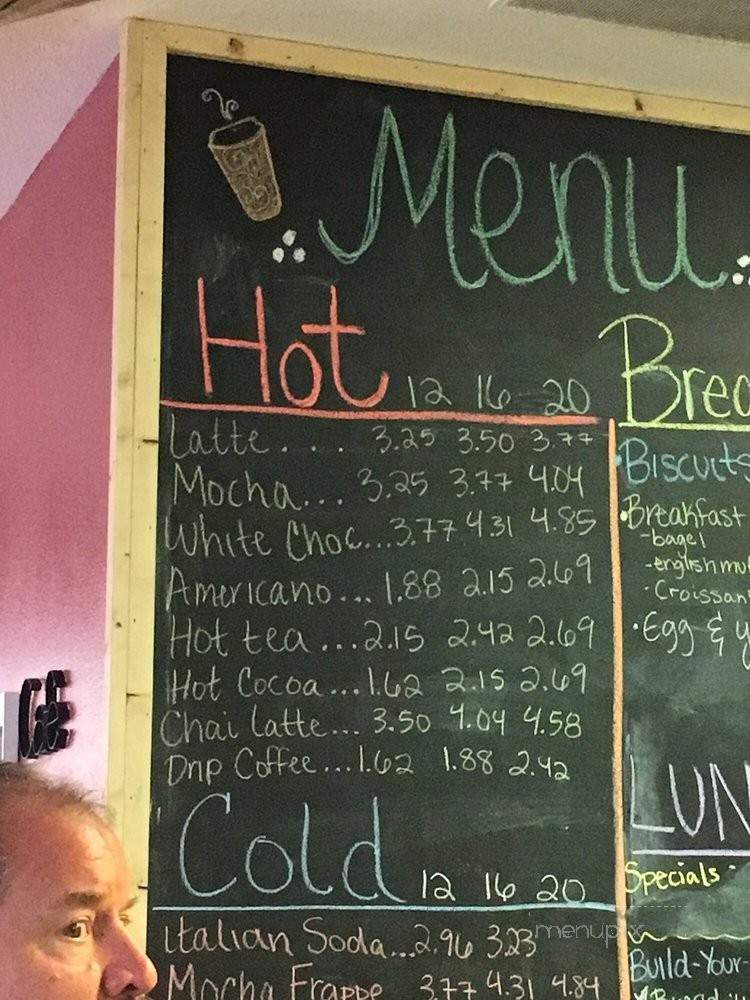 Menu
Hot 12 16 20
Latte . . . . 3.25 3.50 3.77
Mocha... 3.25 3.77 4.04
White Choc...3.77 4.31 4.85
Americano... 1.88 2.15 2.69
Hot tea ...2.15 2.42 2.69
Hot Cocoa...1.62 2.15 2.69
Chai Latte... 3.50 4.04 4.58
Drip Coffee...1.62 1.88 2.42
Cold 12 16 20
Italian Soda...2.96 3.23
Mocha Frappe 3.77 4.31 4.84
Brea
Biscuits
•Breakfast
-bagel
-english mu
-Croissan
•Egg & y
LUN
Specials
Build-Your-
CE
menupix